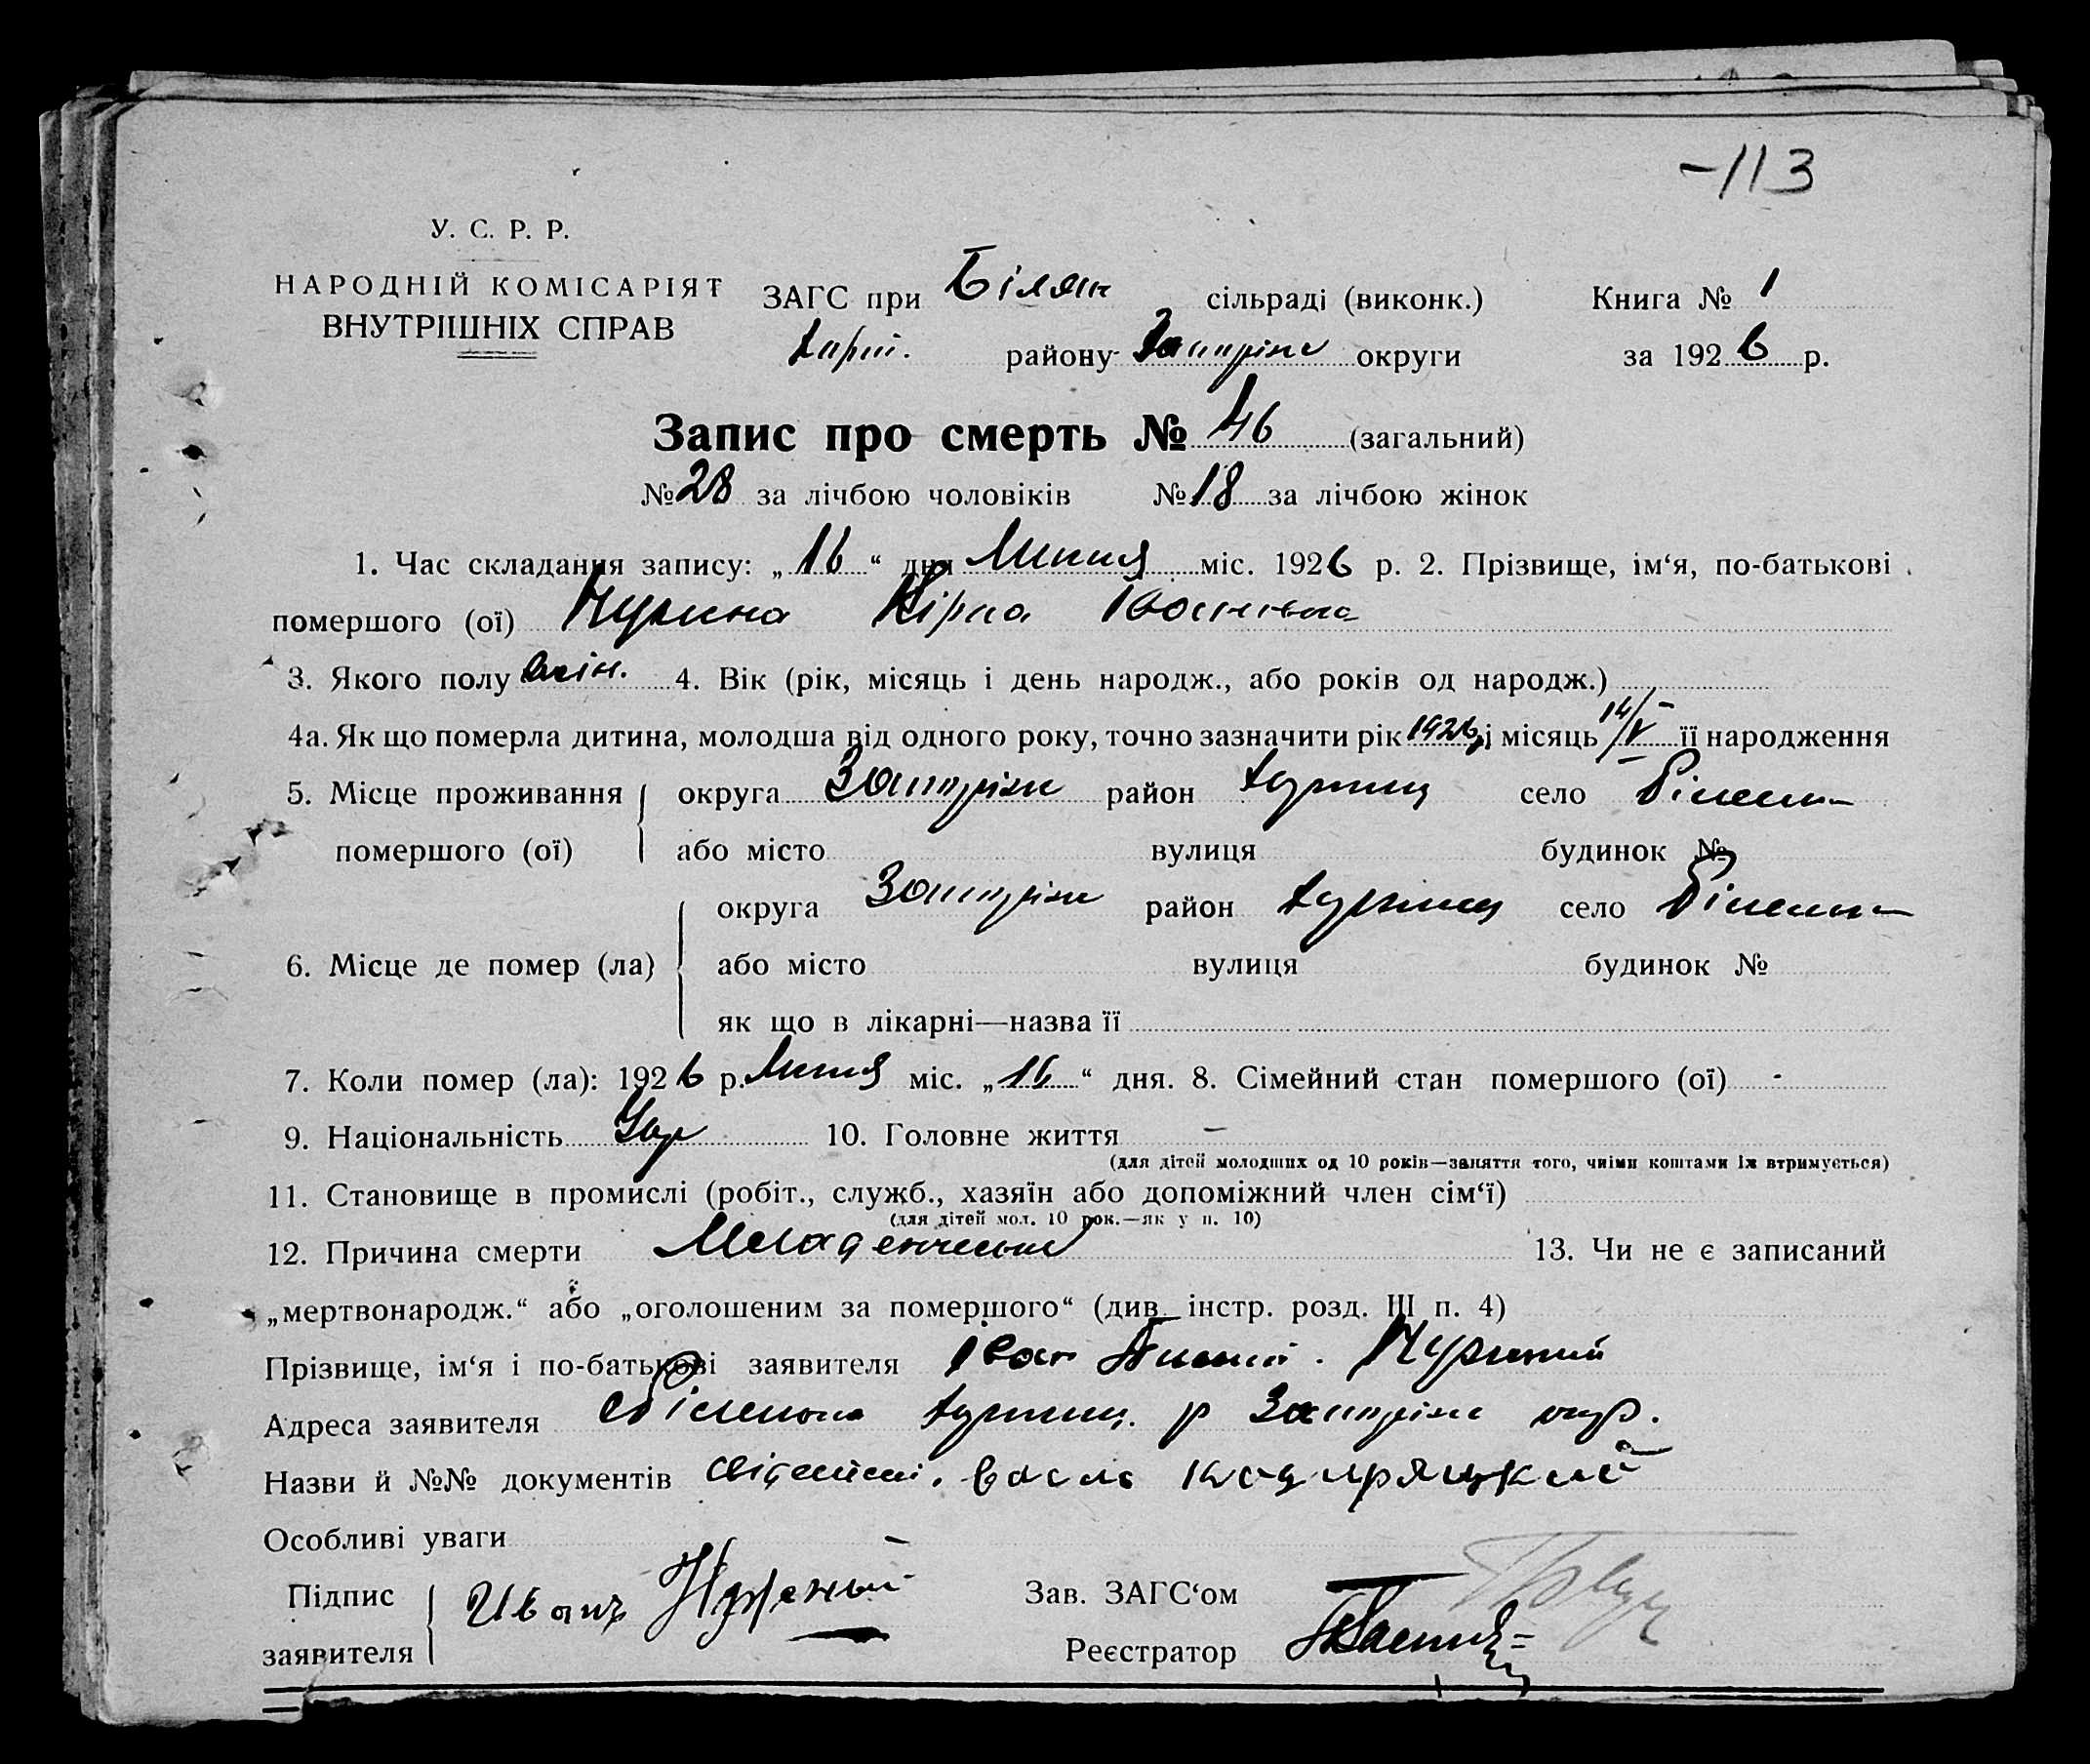 -113
У. С. Р. Р.
НАРОДНІЙ КОМІСАРІЯТ
ВНУТРІШНІХ СПРАВ
ЗАГС при Білян сільраді (виконк.)
району Запоріж округи
Книга № 1
за 1926 р.
Запис про смерть № 46 (загальний)
№ 28 за лічбою чоловіків № 18 за лічбою жінок
1. Час складання запису: „16“ дня Липня міс. 1926 р. 2. Прізвище, ім‘я, по-батькові
помершого (ої) Іванівна
3. Якого полу жін. 4. Вік (рік, місяць і день народж., або років од народж.)
4а. Як що померла дитина, молодша від одного року, точно зазначити рік 1926 і місяць 14/V її народження
5. Місце проживання округа Запоріж район село
помершого (ої) або місто вулиця будинок №
округа Запоріж район село
6. Місце де помер (ла) або місто вулиця будинок №
як що в лікарні—назва її
7. Коли помер (ла): 1926 р. Липня міс. „16“ дня. 8. Сімейний стан помершого (ої) -
9. Національність Укр 10. Головне життя -
(для дітей молодших од 10 років—заняття того, чиїми коштами їх втримується)
11. Становище в промислі (робіт., служб., хазяїн або допоміжний член сім‘ї)
(для дітей мол. 10 рок.—як у п. 10)
12. Причина смерти Младенческий 13. Чи не є записаний
„мертвонародж.“ або „оголошеним за помершого“ (див. інстр. розд. III п. 4)
Прізвище, ім‘я і по-батькові заявителя Іван
Адреса заявителя р Запоріж окр.
Назви й №№ документів
Особливі уваги
Підпис
заявителя Иванъ
Зав. ЗАГС‘ом
Реєстратор